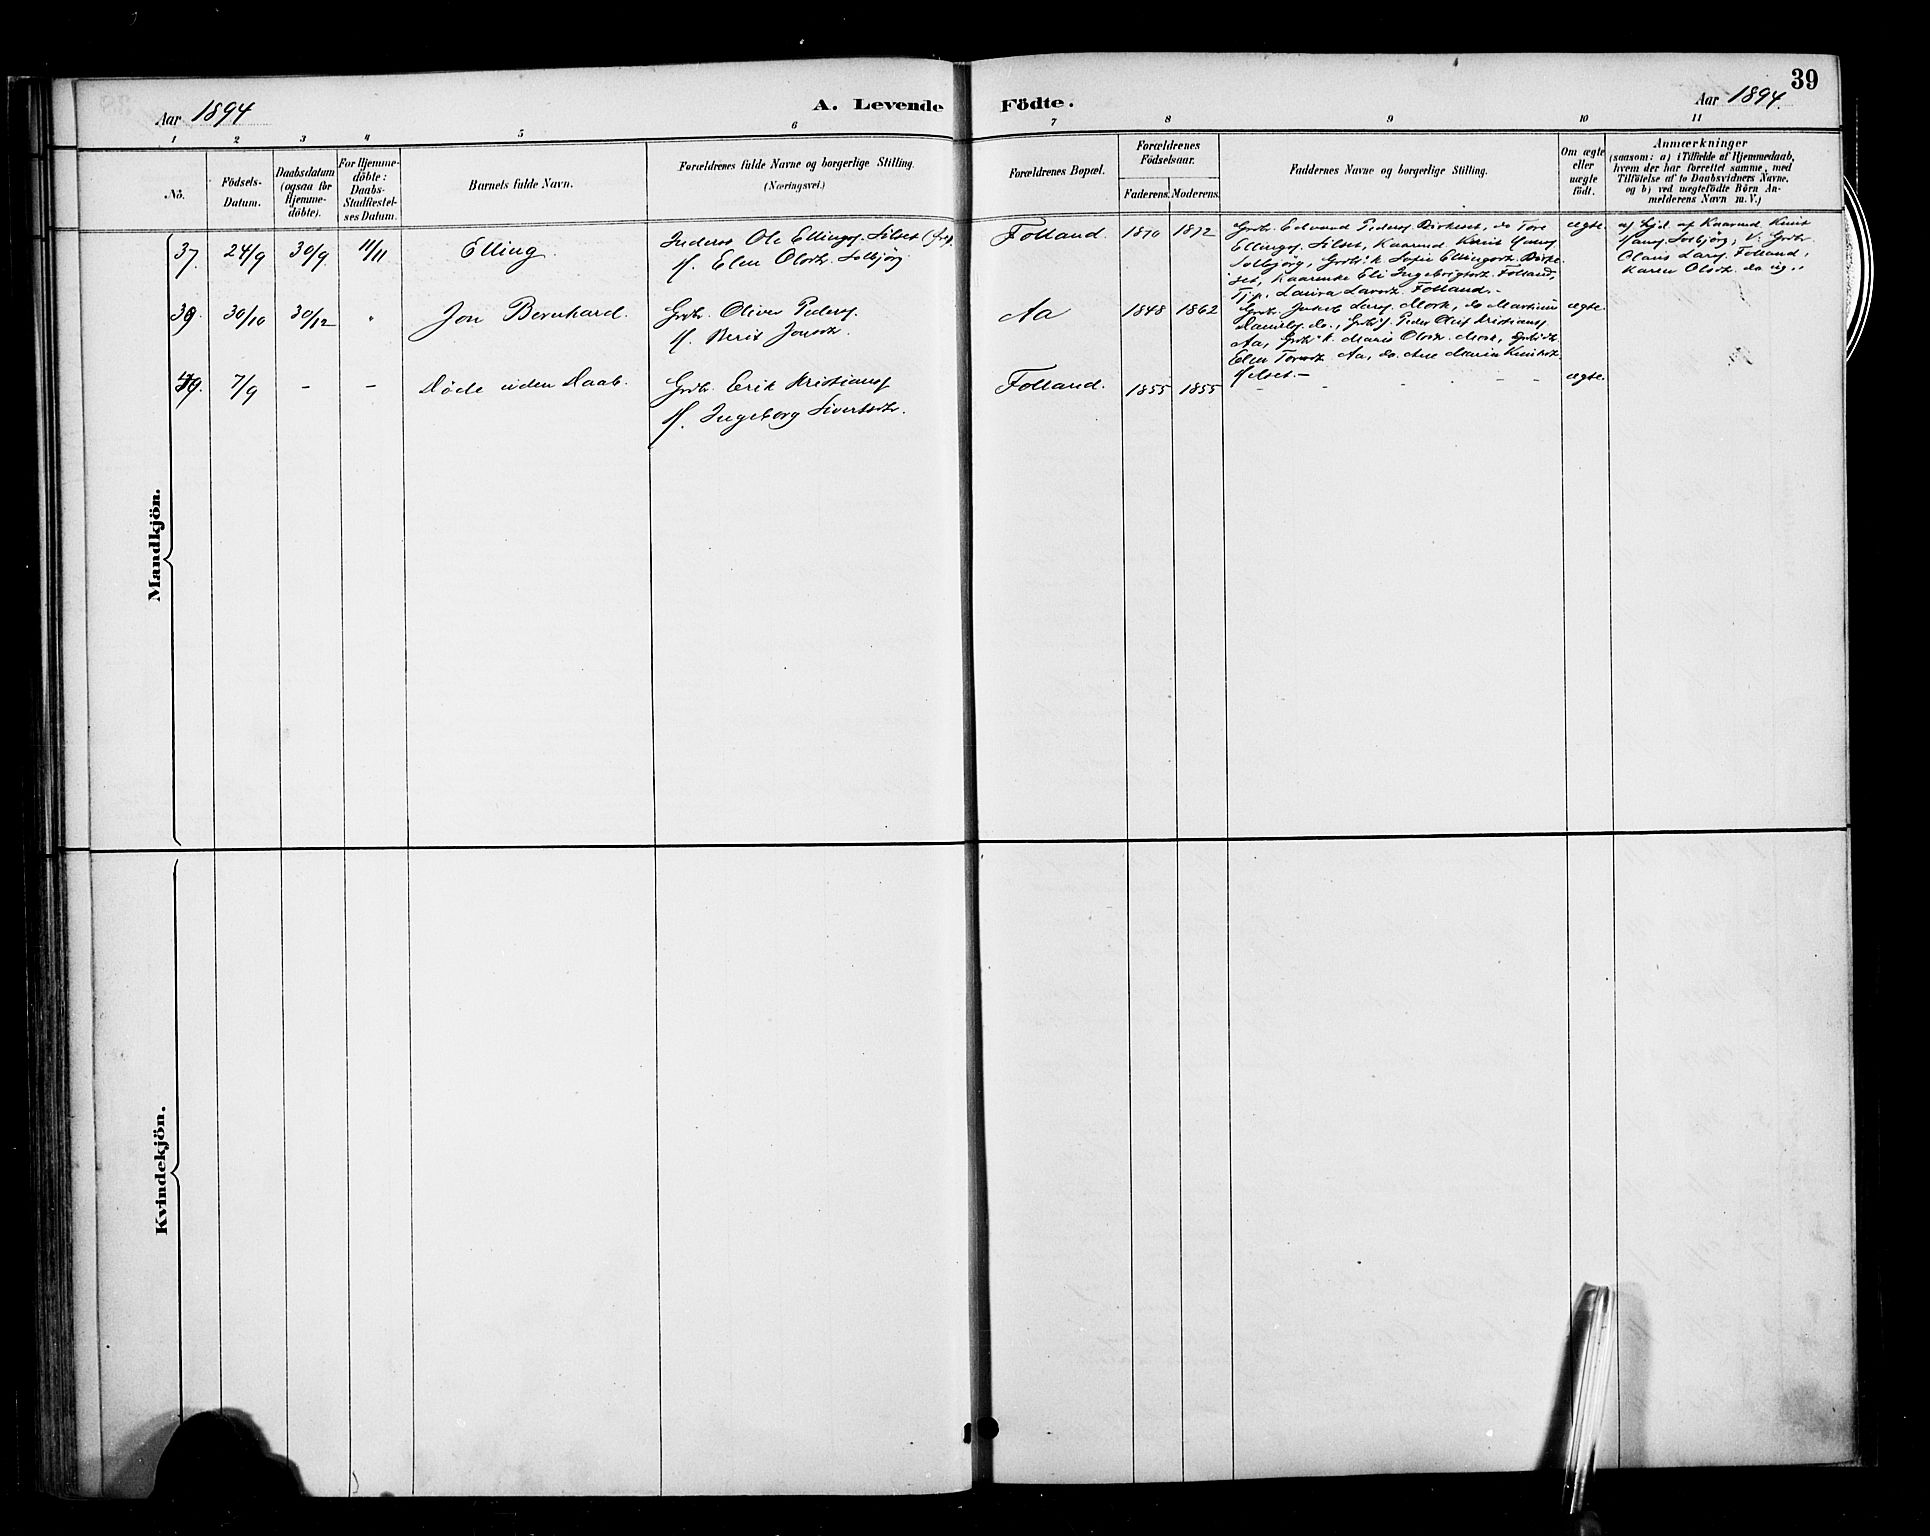 39
Aar 1894
A. Levende Födte.
Aar 1894.
1 2 3 4 5 6 7 8 9 10 11
No.
Födsels-
Datum.
Daabsdatum
(ogsaa for
Hjemme-
döbte).
For Hjemme-
döbte:
Daabs-
Stadfæstel-
ses Datum.
Barnets fulde Navn.
Forældrenes fulde Navne og borgerlige Stilling.
(Næringsvei.)
Forældrenes Bopæl.
Forældrenes
Födselsaar.
Faderens. Moderens.
Faddernes Navne og borgerlige Stilling.
Om ægte
eller
uægte
födt.
Anmærkninger
(saasom: a) i Tilfælde af Hjemmedaab,
hvem der har forrettet samme, med
Tilföielse af to Daabsvidners Navne,
og b) ved uægtefödte Börn An-
melderens Navn m. V.)
Mandkjön.
37. 24/9 30/9. 11/11 Elling.
Inderst Ole Ellings. Silset
M. Elen Olsdtr. Solbjörg
Folland. 1870 1872
Grdbr. Edvard Peders. Birkeset, do Tore
Ellings. Silset, Kaarmd. Knut Hans.
Solbjörg, Grdbr.k. Sofie Ellingsdtr. Birke-
set, Kaarenke Eli Ingebrigtsdtr. Folland,
Tj.p. Laura Larsdtr. Folland.-
ægte.
a) Hjd. af Kaarmd. Knut
Hans. Solbjörg, V: Grdbr.
Olaus Lars. Folland,
Karen Olsdtr. do ig.
38. 30/10 30/12 " Jon Bernhard.
Grdbr. Oliver Peders.
M. Berit Jonsdtr.
Aa 1848 1862
Grdbr. Jakob Lars. Mork, do Martinus
Daniels. do., Grdbr.s. Peder Olaf Kristians.
Aa, Grdbr.k. Maris Olsdtr. Mork, Grdbr.dtr.
Elen Toresdtr. Aa, do. Ane Marie Knutsdtr.
Helset.-
ægte.
39. 7/9 - - Døde uden Daab.
Grdbr. Erik Kristians.
M. Ingeborg Sivertsdtr.
Folland. 1855 1855 - - - - - ægte.
Kvindekjön.